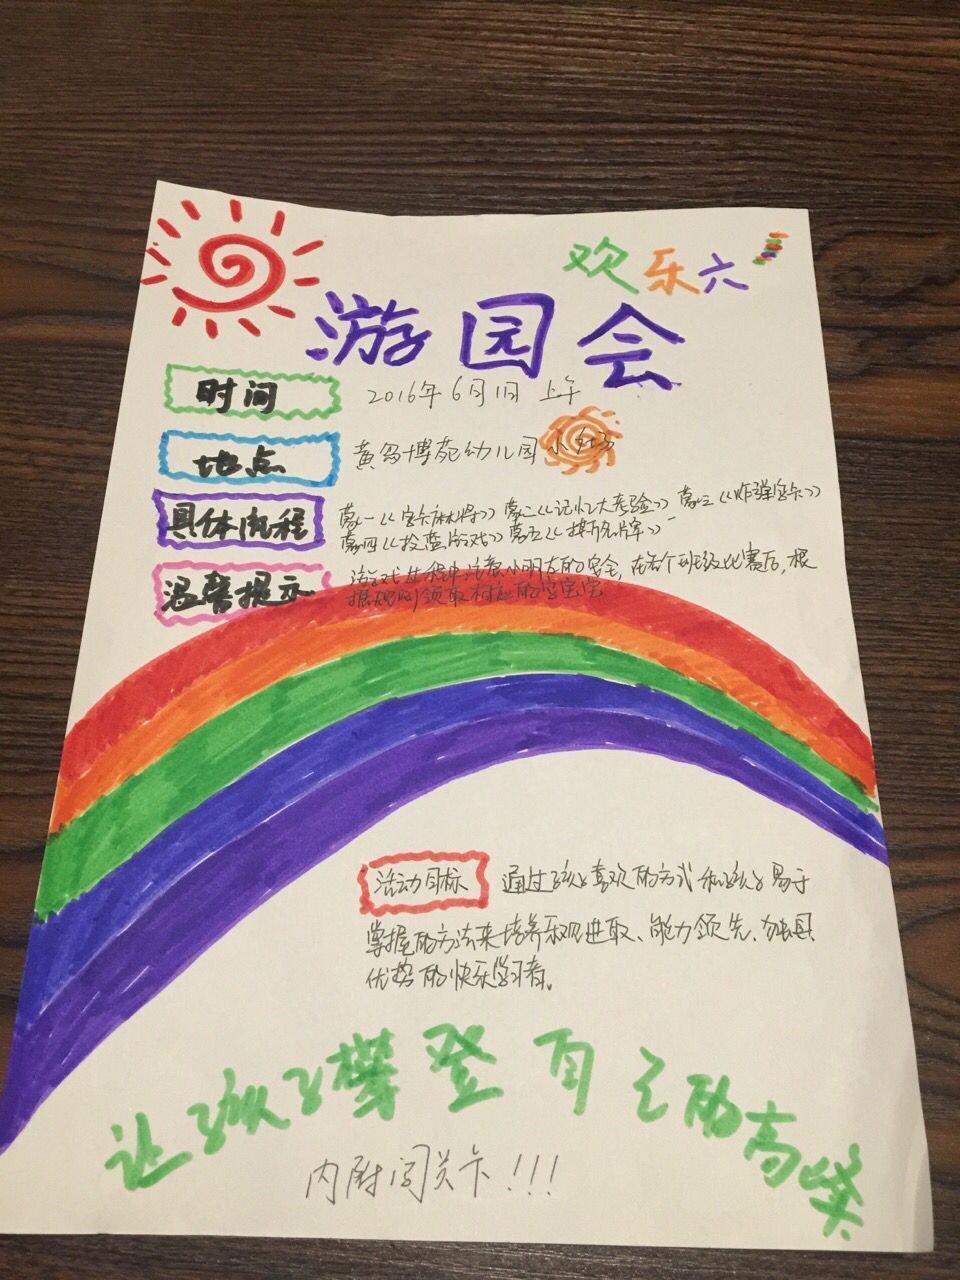 欢乐六一
游园会
时间 2016年6月1日 上午
地点 黄多博苑幼儿园小
具体流程 蒙一《宾果麻将》蒙二《记忆大考验》蒙三《炸弹宾卡》
蒙四《投篮游戏》蒙五《撕名牌》
温馨提示 游戏过程中注意小朋友的安全,在各个班级比赛后,根
据规则领取相应的宝宝
活动目标 通过孩子喜欢的方式和孩子易于
掌握的方法来培养乐观进取、能力领先、独具
优势的快乐学习者。
让孩子攀登自己的高峰
内附闯关卡!!!